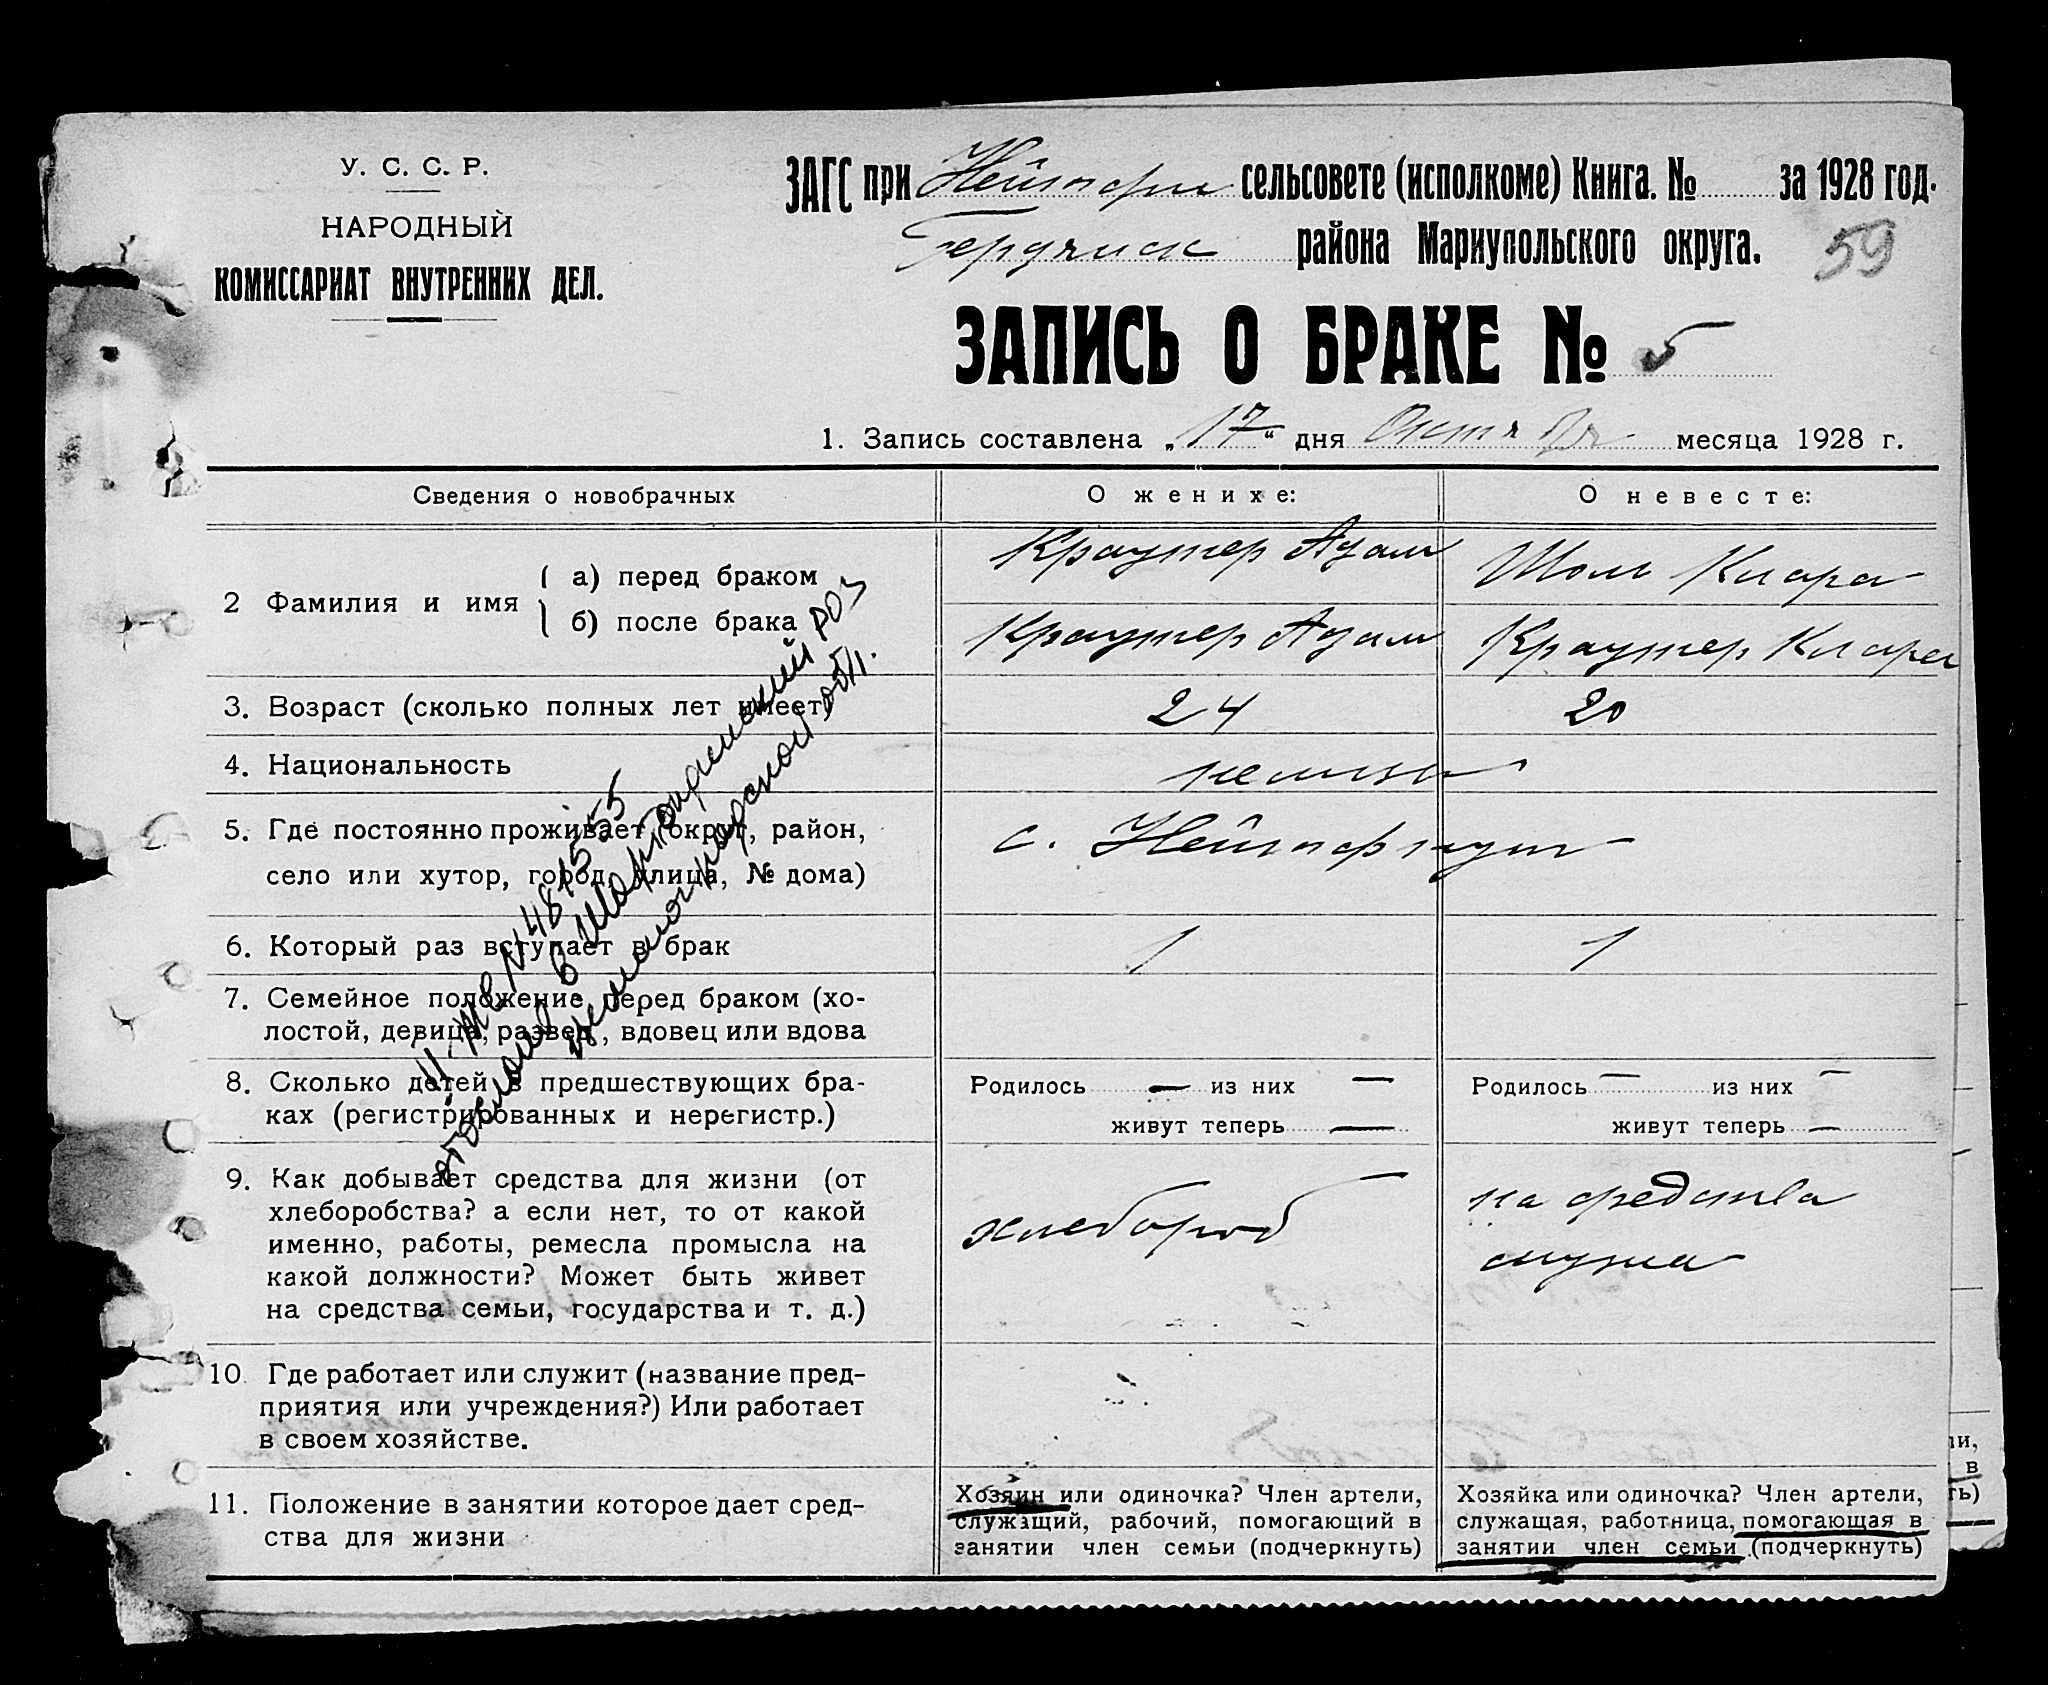 У. С. С. Р.
НАРОДНЫЙ
КОМИССАРИАТ ВНУТРЕННИХ ДЕЛ.
ЗАГС при сельсовете (исполкоме) Книга. № за 1928 год.
района Мариупольского округа.
59
ЗАПИСЬ О БРАКЕ № 5
1. Запись составлена „17“ дня Октября месяца 1928 г.
Сведения о новобрачных
О женихе:
О невесте:
2 Фамилия и имя
а) перед браком
Краутер Адам
Шоль Клара
б) после брака
Краутер Адам
Краутер Клара
3. Возраст (сколько полных лет имеет)
24
20
4. Национальность
немцы
5. Где постоянно проживает (округ, район,
село или хутор, город, улица, № дома)
с.
6. Который раз вступает в брак
1
1
7. Семейное положение перед браком (хо-
лостой, девица, развед., вдовец или вдова
8. Сколько детей в предшествующих бра-
ках (регистрированных и нерегистр.)
Родилось — из них —
живут теперь —
Родилось — из них —
живут теперь —
9. Как добывает средства для жизни (от
хлеборобства? а если нет, то от какой
именно, работы, ремесла промысла на
какой должности? Может быть живет
на средства семьи, государства и т. д.)
хлебороб
на средства
мужа
10. Где работает или служит (название пред-
приятия или учреждения?) Или работает
в своем хозяйстве.
11. Положение в занятии которое дает сред-
ства для жизни
Хозяин или одиночка? Член артели,
служащий, рабочий, помогающий в
занятии член семьи (подчеркнуть)
Хозяйка или одиночка? Член артели,
служащая, работница, помогающая в
занятии член семьи (подчеркнуть)
в